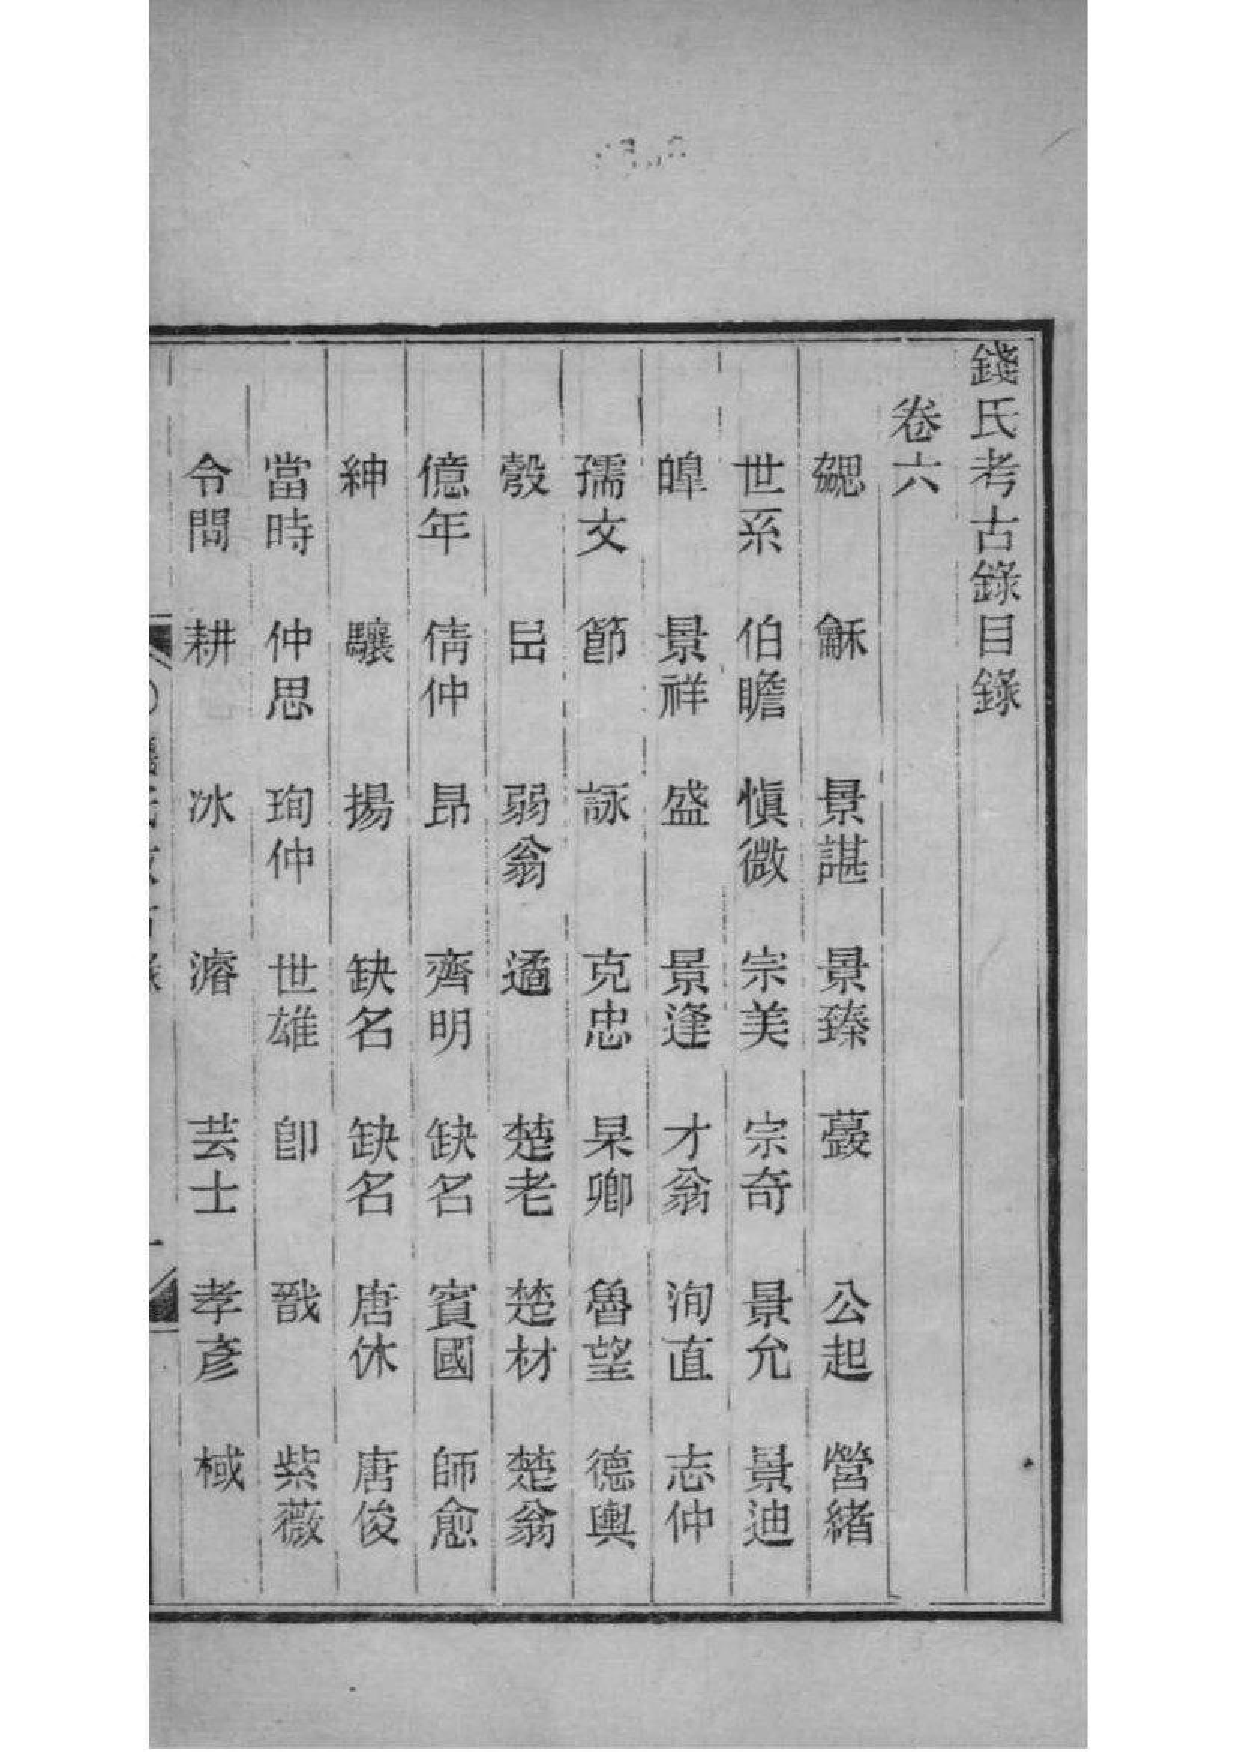 錢氏考古錄目錄
卷六
勰 龢 景諶 景臻 藙 公起 營緒
世系 伯瞻 愼微 宗美 宗奇 景允 景迪
皥 景祥 盛 景逢 才翁 洵直 志仲
孺文 節 詠 克忠 杲卿 魯望 德輿
觳 㠯 弱翁 遹 楚老 楚材 楚翁
億年 倩仲 昻 齊明 缺名 賓國 師愈
紳 驤 揚 缺名 缺名 唐休 唐俊
當時 仲思 珣仲 世雄 卽 戩 紫薇
令問 耕 冰 濬 芸士 孝彥 棫